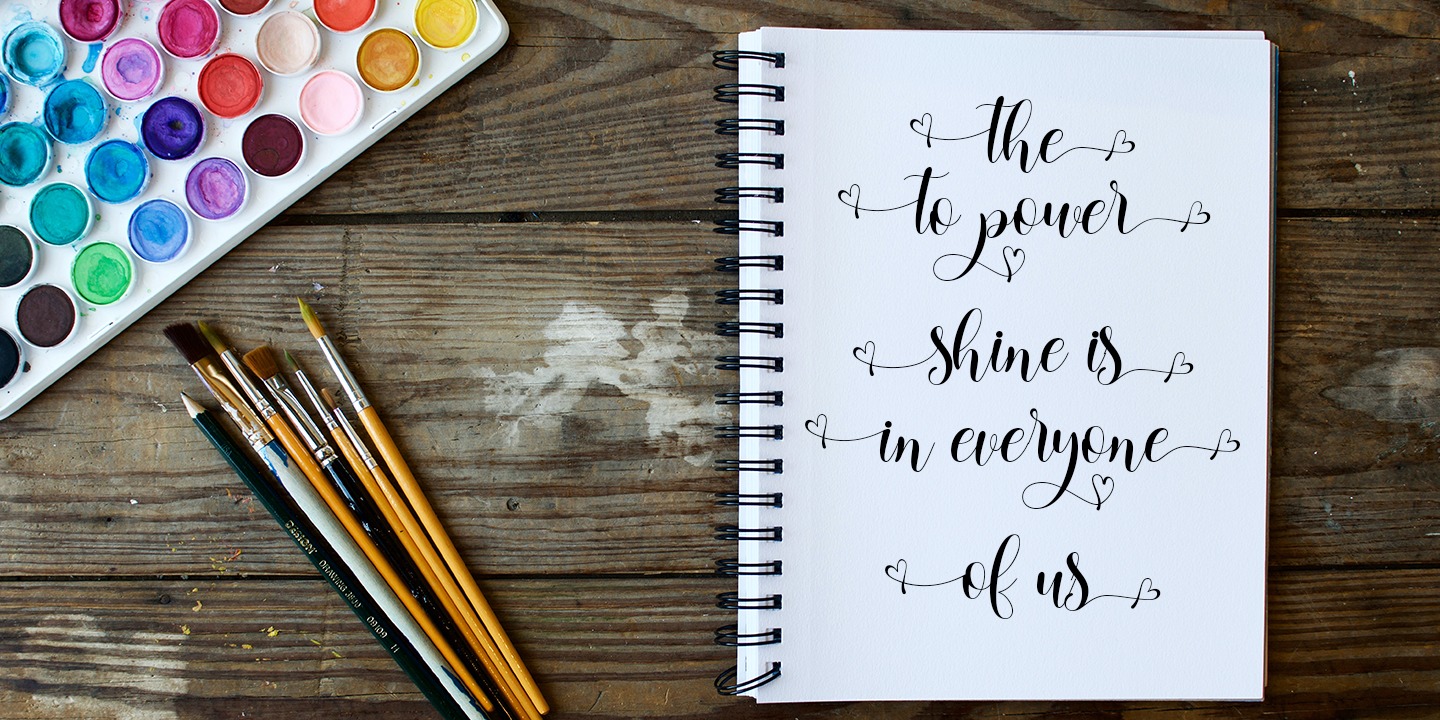 the
to power
shine is
in everyone
of us
DESIGN DRAWING